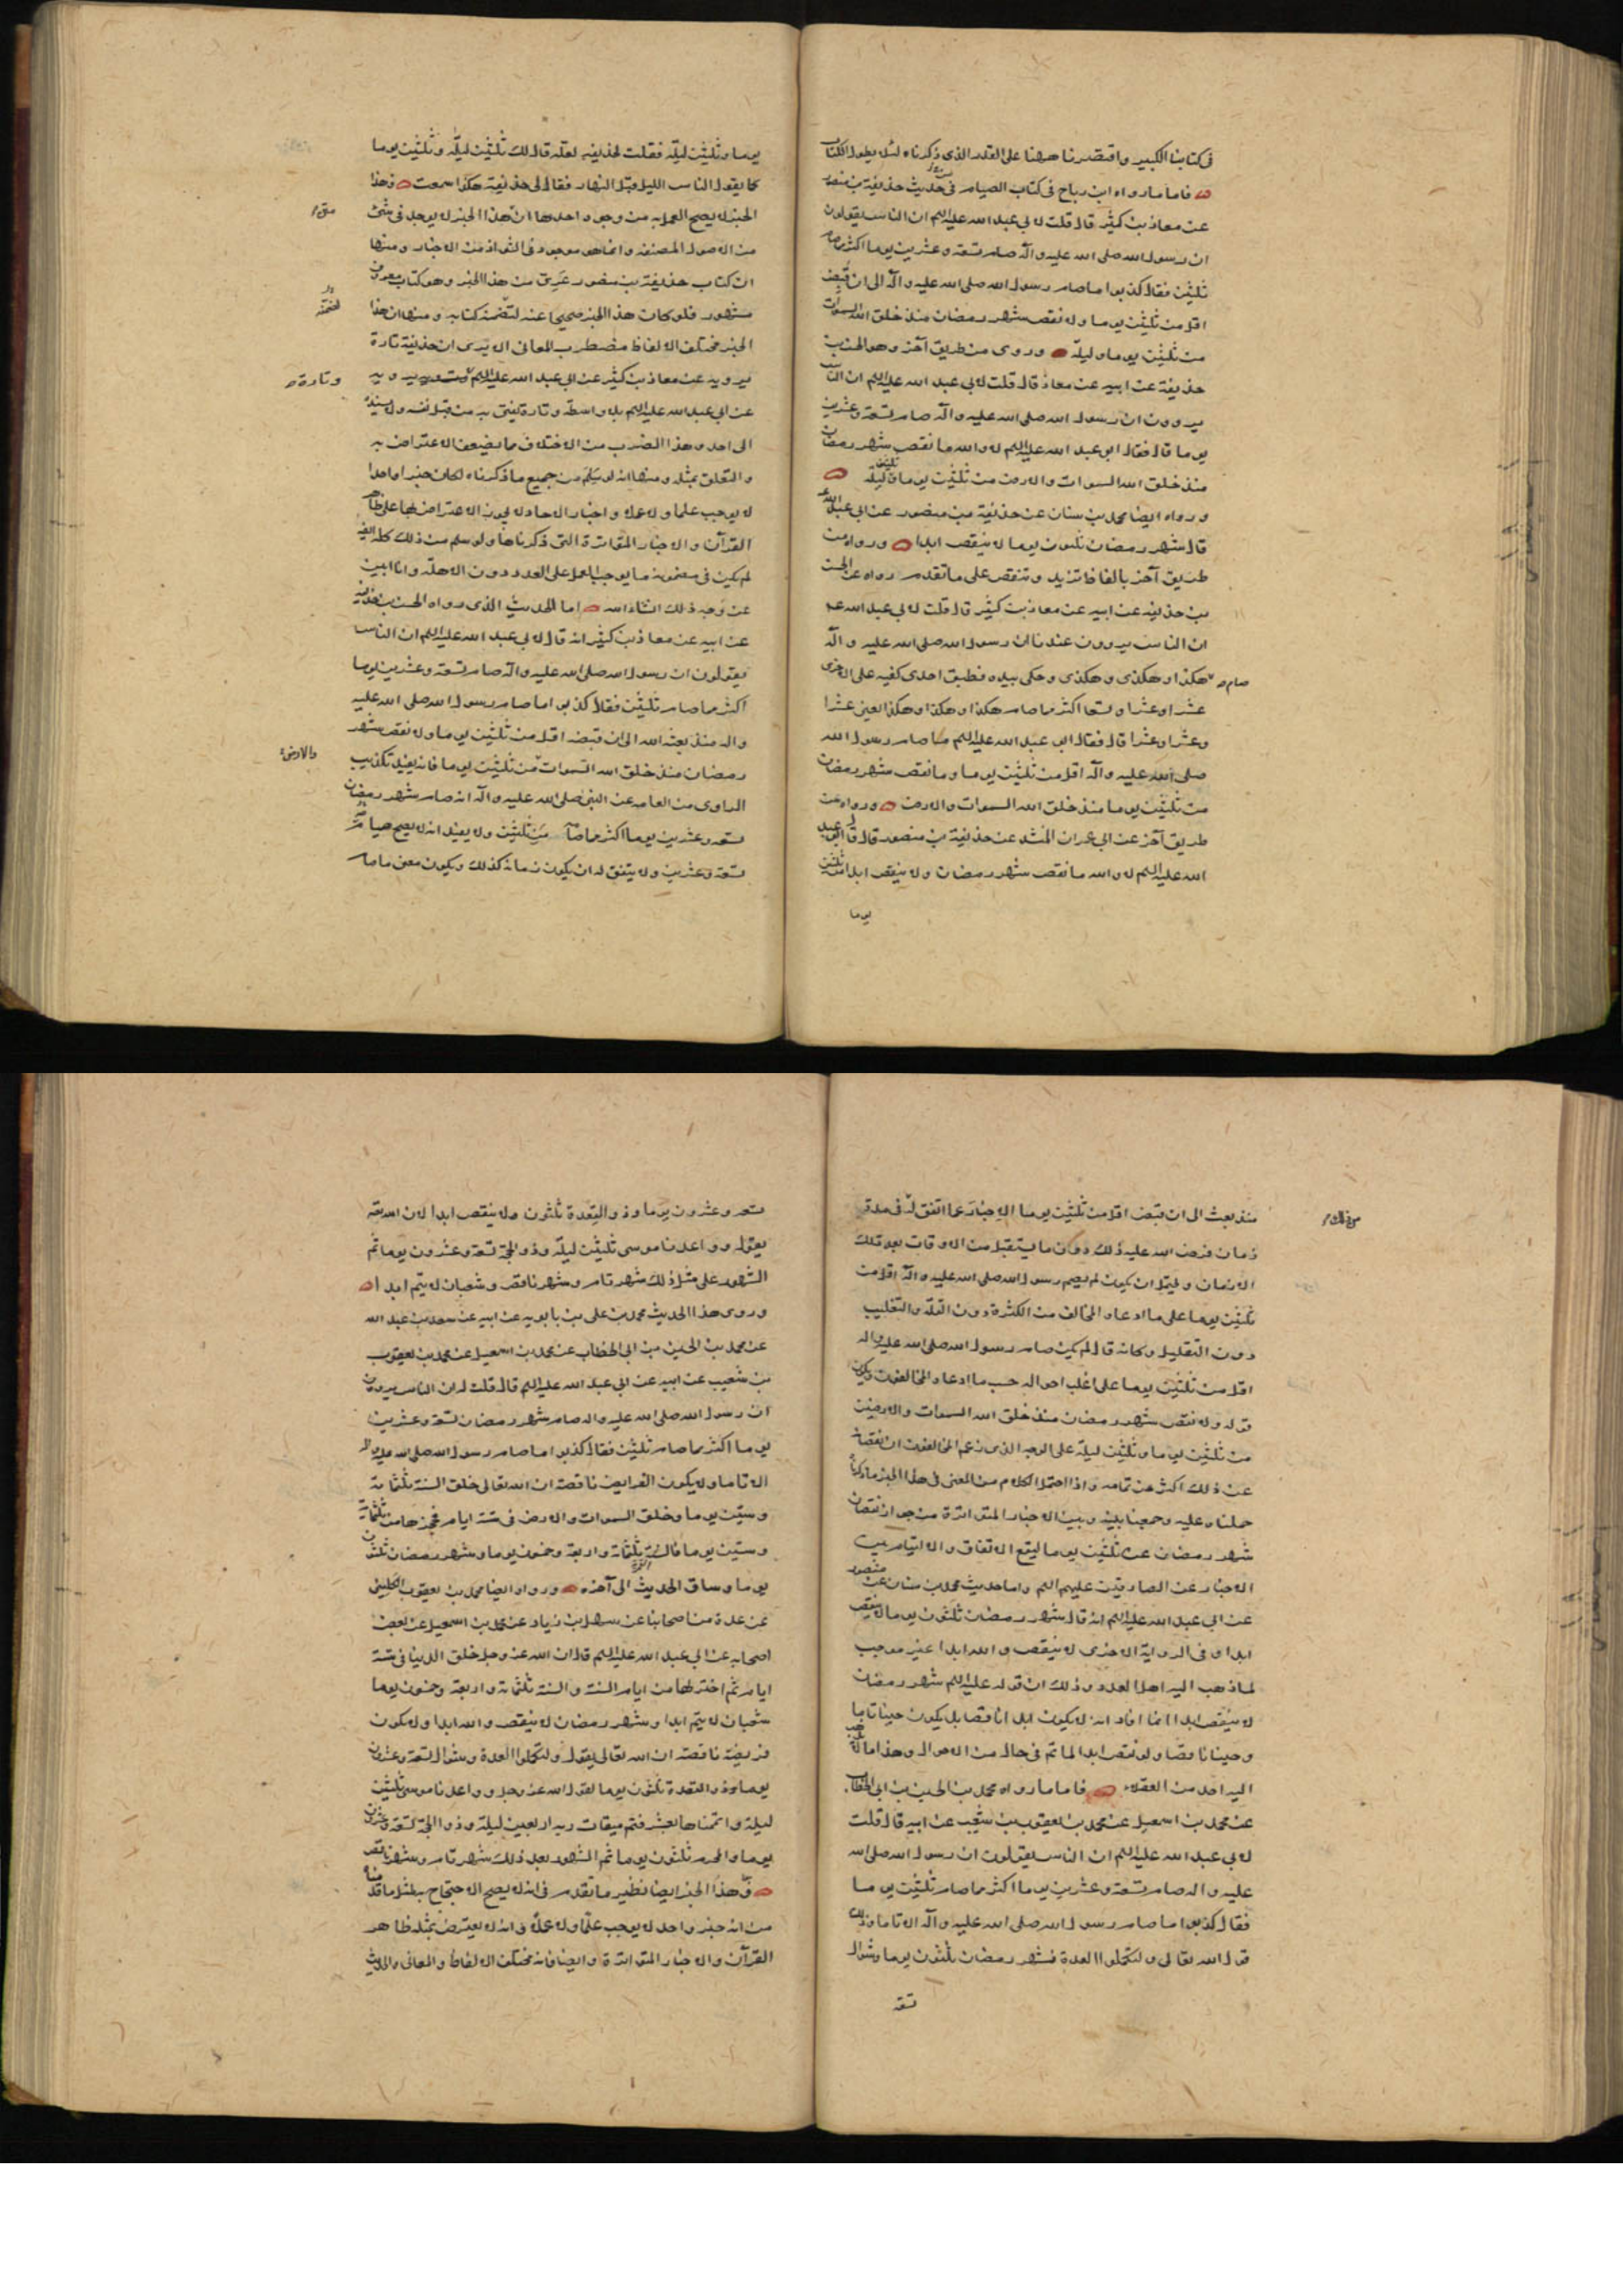 في كتابنا الكبير واقتصرنا ههنا على القدر الذي ذكرناه لئلا يطول الكتاب
فاما ما رواه ابن رباح في كتاب الصيام في حديث حذيفة بن منصور
عن معاذ بن كثير قال قلت لابي عبد الله عليه السلم ان الناس يقولون
ان رسول الله صلى الله عليه وآله صام تسعة وعشرين يوما اكثر مما صام
ثلثين فقال كذبوا ما صام رسول الله صلى الله عليه وآله الى ان قبض
اقل من ثلثين يوما ولا نقص شهر رمضان منذ خلق الله السموات
من ثلثين يوما وليلة وروى من طريق آخر وهو الحسن بن
حذيفة عن ابيه عن معاذ قال قلت لابي عبد الله عليه السلم ان الناس
يروون ان رسول الله صلى الله عليه وآله صام تسعة وعشرين
يوما قال فقال ابو عبد الله عليه السلم لا والله ما نقص شهر رمضان
منذ خلق الله السموات والارض من ثلثين يوما وثلثين ليلة
ورواه ايضا محمد بن سنان عن حذيفة بن منصور عن ابي عبد الله
قال شهر رمضان ثلثون يوما لا ينقص ابدا ورواه من
طريق آخر بالفاظ تزيد وتنقص على ما تقدم رواه عن الحسن
بن حذيفة عن ابيه عن معاذ بن كثير قال قلت لابي عبد الله عم
ان الناس يروون عندنا ان رسول الله صلى الله عليه وآله
صام هكذا وهكذى وهكذى وحكى بيده فطبق احدى كفيه على الاخرى
عشرا وعشرا وتسعا اكثر مما صام هكذا وهكذا وهكذا يعني عشرا
وعشرا وعشرا قال فقال ابو عبد الله عليه السلم ما صام رسول الله
صلى الله عليه وآله اقل من ثلثين يوما وما نقص شهر رمضان
من ثلثين يوما منذ خلق الله السموات والارض ورواه عن
طريق آخر عن ابي عمران المنشد عن حذيفة بن منصور قال قال ابو عبد
الله عليه السلم لا والله ما نقص شهر رمضان ولا ينقص ابدا من ثلثين
يوما
يوما وثلثين ليلة فقلت لحذيفة لعله قال لك ثلثين ليلة وثلثين يوما
كما يقول الناس الليل قبل النهار فقال لي حذيفة هكذا سمعت وهذا
الخبر لا يصح العمل به من وجوه احدها ان هذا الخبر لا يوجد في شئ
من الاصول المصنفة وانما هو موجود في الشواذ من الاخبار ومنها
ان كتاب حذيفة بن منصور عري من هذا الخبر وهو كتاب معروف
مشهور فلو كان هذا الخبر صحيحا عنه لتضمنه كتابه ومنها ان هذا
الخبر مختلف الالفاظ مضطرب المعاني الا ترى ان حذيفة تارة
يرويه عن معاذ بن كثير عن ابي عبد الله عليه السلم يرويه
وتارة
عن ابي عبد الله عليه السلم بلا واسطة وتارة يفتي به من قبل نفسه ولا يسنده
الى احد وهذا الضرب من الاختلاف مما يضعف الاعتراض به
والتعلق بمثله ومنها انه لو سلم من جميع ما ذكرناه لكان خبرا واحدا
لا يوجب علما ولا عملا واخبار الاحاد لا يجوز الاعتراض بها على ظاهر
القرآن والاخبار المتواترة التي ذكرناها ولو سلم من ذلك كله ايضا
لم يكن في مضمونه ما يوجب العمل على العدد دون الاهلة وانا ابين
عن وجه ذلك انشاء الله اما الحديث الذي رواه الحسن بن حذيفة
عن ابيه عن معاذ بن كثير انه قال لابي عبد الله عليه السلم ان الناس
يقولون ان رسول الله صلى الله عليه وآله صام تسعة وعشرين يوما
اكثر مما صام ثلثين فقال كذبوا ما صام رسول الله صلى الله عليه
وآله منذ بعثه الله الى ان قبضه اقل من ثلثين يوما ولا نقص شهر
رمضان منذ خلق الله السموات من ثلثين يوما فانه يفيد تكذيب
والارض
الراوي من العامه عن النبي صلى الله عليه وآله انه صام شهر رمضان
تسعة وعشرين يوما اكثر مما صامه ثلثين ولا يفيد انه لا يصح صيامه
تسعة وعشرين ولا يتفق له ان يكون زمانه كذلك ويكون معنى ما صام
منذ بعث الى ان قبض اقل من ثلثين يوما الاخبار عما اتفق له في مدة
زمان فرض الله عليه ذلك دون ما يستقبل من الاوقات بعد تلك
الازمان ويحتمل ان يكون لم يصم رسول الله صلى الله عليه وآله اقل من
ثلثين يوما على ما ادعاه المخالف من الكثرة دون القلة والتغليب
دون التقليل وكانه قال لم يكن صام رسول الله صلى الله عليه وآله
اقل من ثلثين يوما على اغلب احواله حسب ما ادعاه المخالفون ويكون
قوله ولا نقص شهر رمضان منذ خلق الله السموات والارضين
من ثلثين يوما وثلثين ليلة على الوجه الذي زعم المخالفون ان نقصانه
عن ذلك اكثر من تمامه واذا احتمل الكلام من المعنى في هذا الخبر ما ذكرناه
حملناه عليه وجمعنا بينه وبين الاخبار المتواترة من جواز نقصان
شهر رمضان عن ثلثين يوما ليقع الاتفاق والالتيام بين
الاخبار عن الصادقين عليهم السلم واما حديث محمد بن سنان عن
منصور
عن ابي عبد الله عليه السلم انه قال شهر رمضان ثلثون يوما لا ينقص
ابدا وفي الرواية الاخرى لا ينقص والله ابدا غير موجب
لما ذهب اليه اهل العدد وذلك ان قوله عليه السلم شهر رمضان
لا ينقص ابدا انما افاد انه لا يكون ابدا ناقصا بل يكون حينا تاما
وحينا ناقصا ولو نقص ابدا لما تم في حال من الاحوال وهذا ما لا يذهب
اليه احد من العقلاء فاما ما رواه محمد بن الحسين بن ابي الخطاب
عن محمد بن اسمعيل عن محمد بن يعقوب بن شعيب عن ابيه قال قلت
لابي عبد الله عليه السلم ان الناس يقولون ان رسول الله صلى الله
عليه وآله صام تسعة وعشرين يوما اكثر مما صام ثلثين يوما
فقال كذبوا ما صام رسول الله صلى الله عليه وآله الا تاما وذلك
قول الله تعالى ولتكملوا العدة فشهر رمضان ثلثون يوما وشوال
تسعة
تسعه وعشرون يوما وذو القعدة ثلثون ولا ينقص ابدا لان الله تعه
يقول وواعدنا موسى ثلثين ليلة وذو الحجة تسعة وعشرون يوما ثم
الشهور على مثل ذلك شهر تام وشهر ناقص وشعبان لا يتم ابدا
وروى هذا الحديث محمد بن علي بن بابويه عن ابيه عن سعد بن عبد الله
عن محمد بن الحسين بن ابي الخطاب عن محمد بن اسمعيل عن محمد بن يعقوب
بن شعيب عن ابيه عن ابي عبد الله عليه السلم قال قلت له ان الناس يروون
ان رسول الله صلى الله عليه وآله صام شهر رمضان تسعة وعشرين
يوما اكثر مما صام ثلثين فقال كذبوا ما صام رسول الله صلى الله عليه وآله
الا تاما ولا يكون الفرايض ناقصة ان الله تعالى خلق السنة ثلثمائة
وستين يوما وخلق السموات والارض في ستة ايام فحجزها من ثلثمائة
وستين يوما فالسنة ثلثمائة واربعة وخمسون يوما وشهر رمضان ثلثون
يوما وساق الحديث الى آخره ورواه ايضا محمد بن يعقوب الكليني
عن عدة من اصحابنا عن سهل بن زياد عن محمد بن اسمعيل عن بعض
اصحابه عن ابي عبد الله عليه السلم قال ان الله عز وجل خلق الدنيا في ستة
ايام ثم اختزلها من ايام السنة والسنة ثلثمائة واربعة وخمسون يوما
شعبان لا يتم ابدا وشهر رمضان لا ينقص والله ابدا ولا يكون
فريضة ناقصة ان الله تعالى يقول ولتكملوا العدة وشوال تسعة وعشرون
يوما وذو القعدة ثلثون يوما لقول الله عز وجل وواعدنا موسى ثلثين
ليلة واتممناها بعشر فتم ميقات ربه اربعين ليلة وذو الحجة تسعة وعشرون
يوما والمحرم ثلثون يوما ثم الشهور بعد ذلك شهر تام وشهر ناقص
وهذا الخبر ايضا نظير ما تقدم في انه لا يصح الاحتجاج بمثل ما قدمناه
من انه خبر واحد لا يوجب علما ولا عملا وانه لا يعترض بمثله ظاهر
القرآن والاخبار المتواترة وايضا فانه مختلف الالفاظ والمعاني والحديث